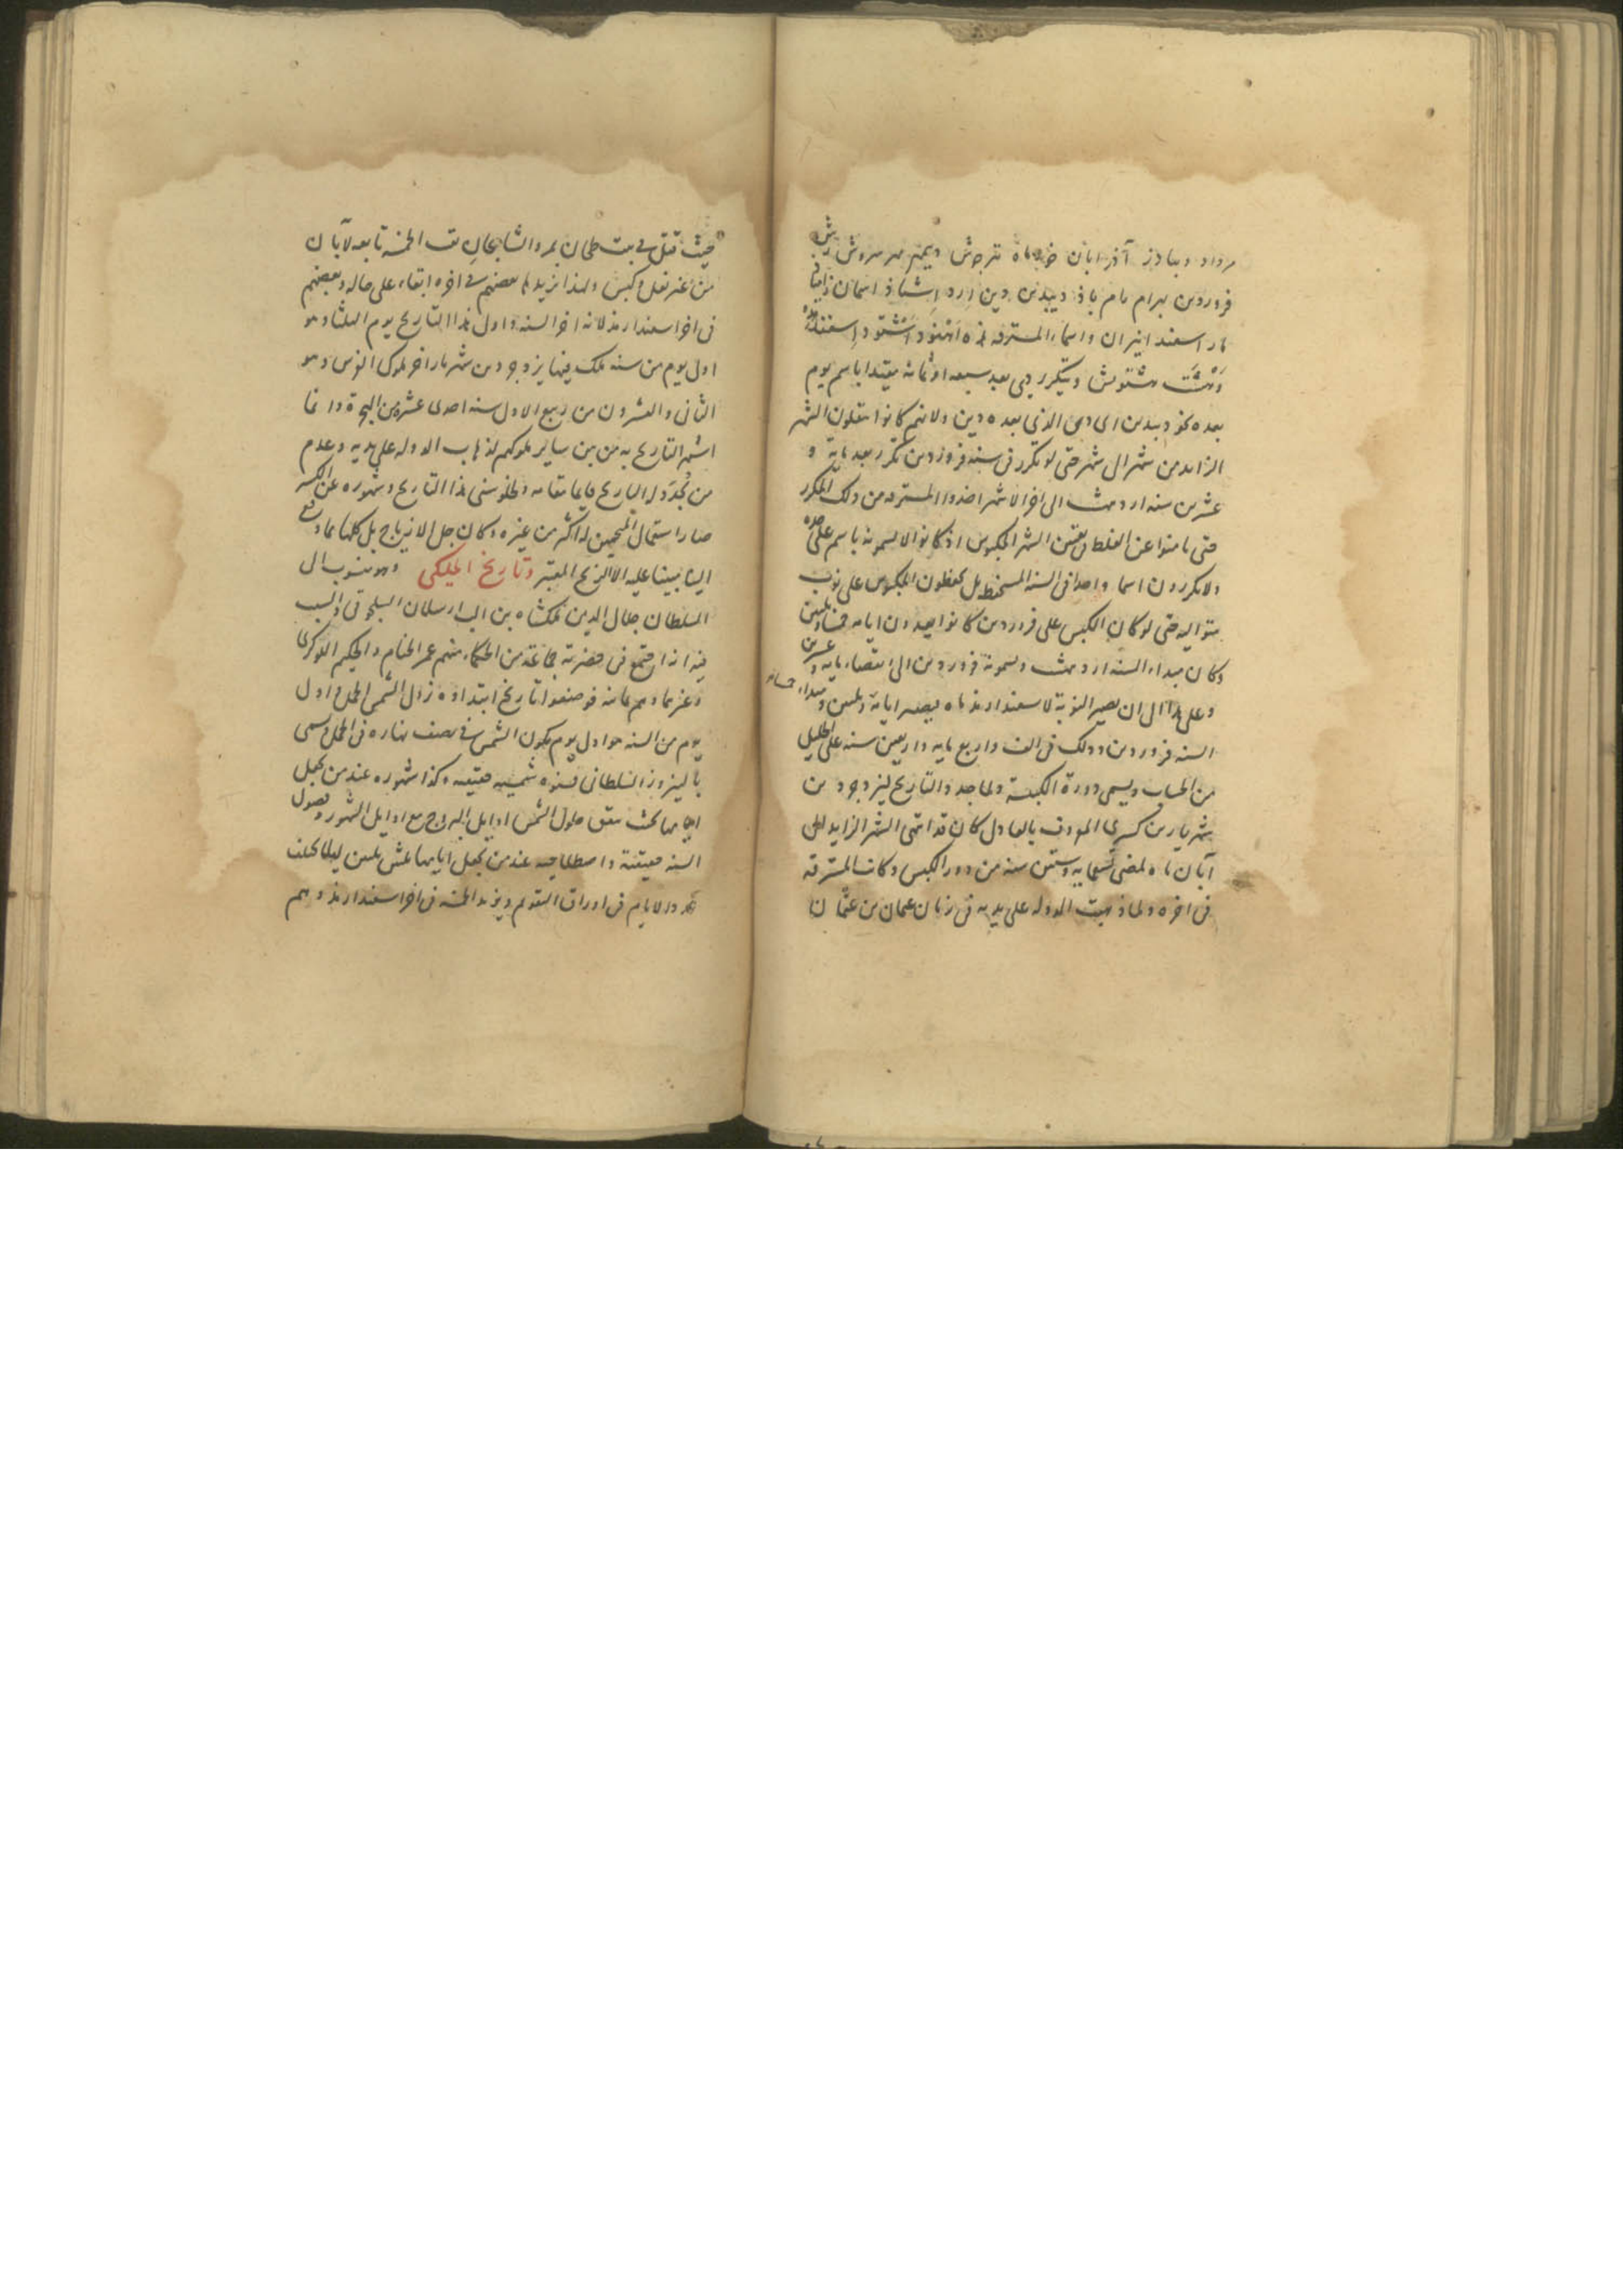 مرداد ديبادز آذر ابان خور ماه تير جوش ديبمهر مهر سروش رشن
فروردين بهرام رام باذ ديبدين دين ارد اشتاذ اسمان زامياذ
مار اسفند انيران واسماء المسترقه هذه اهنوذ اشتوذ اسفندمذ
وهشت هشتويش ويتكرر دى بعد سبعه او ثمانية مقيدا باسم يوم
بعده نحو ديبدين اى دى الذى بعده دين ولانهم كانوا ينقلون الشهر
الزايد من شهر الى شهر حتى لو تكرر فى سنه فروردين تكرر بعد مايه و
عشرين سنه ارديبهشت الى اخر الاشهر اخذوا المسترقه من ذلك المكرر
حتى يامنوا عن الغلط فى تعيين الشهر المكبوس اذ كانوا لا يسمونه باسم على حده
ولا يكررون اسما واحدا فى السنه بل يحفظون المكبوس على نوب
متواليه حتى لو كان الكبس على فروردين كانوا يعدون ايامه خمسا وثلثين
وكان مبداء السنه ارديبهشت ويسمونه فروردين الى انقضاء مايه وعشرين
وعلى هذا الى ان يصير النوبة لاسفندارمذ ماه فيصير ايامه وثلثين ومبداء
السنه فروردين وذلك فى الف واربع مايه واربعين سنه على الجليل
من الحساب ويسمى دورة الكبسة ولما جدد التاريخ ليزدجرد بن
شهريار بن كسرى المعروف بالعادل كان قد انتهى الشهر الزايد الى
آبان ماه لمضى تسعمايه وستين سنه من دور الكبس وكانت المسترقه
فى اخره ولما ذهبت الدوله على يديه فى زمان عثمان بن عفان
حيث قتل فى بيت طحان بمرو الشاهجان بقيت الخمسه تابعه لآبان
من غير نقل وكبس ولهذا يزيدها بعضهم فى اخره ابقاء على حاله وبعضهم
فى اخر اسفندارمذ لانه اخر السنه واول هذا التاريخ يوم الثلثا وهو
اول يوم من سنه ملك فيها يزدجرد بن شهريار اخر ملوك الفرس وهو
الثانى والعشرون من ربيع الاول سنه احدى عشره من الهجرة وانما
اشتهر التاريخ به من بين ساير ملوكهم لذهاب الدوله على يديه وعدم
من تجدد له التاريخ قايما مقامه ولخلو سنى هذا التاريخ وشهوره عن الكسر
صار استعمال المنجمين له اكثر من غيره وكان جل الازياج بل كلها مما وقع
الينا مبنيا عليه الا الزيج المعتبر وتاريخ الملكى وهو منسوب الى
السلطان جلال الدين ملكشاه بن الب ارسلان السلجوقى والسبب
فيه انه اجتمع فى حضرته جماعة من الحكماء منهم عمر الخيام والحكيم اللوكرى
وغيرهما وهم ثمانيه فوضعوا تاريخا ابتداوه نزول الشمس الحمل واول
يوم من السنه هو اول يوم يكون الشمس فى نصف نهاره فى الحمل وسمى
بالنيروز السلطانى فسنوه شمسيه حقيقيه وكذا شهوره عند من يجعل
ايامها بحيث يتفق حلول الشمس اوايل البروج مع اوايل الشهور وفصول
السنه حقيقية واصطلاحيه عند من يجعل ايامها ثلثين ثلثين ليلا يختلف
جدول الايام فى اوراق التقويم ويزيد الخمسة فى اخر اسفندارمذ وهم